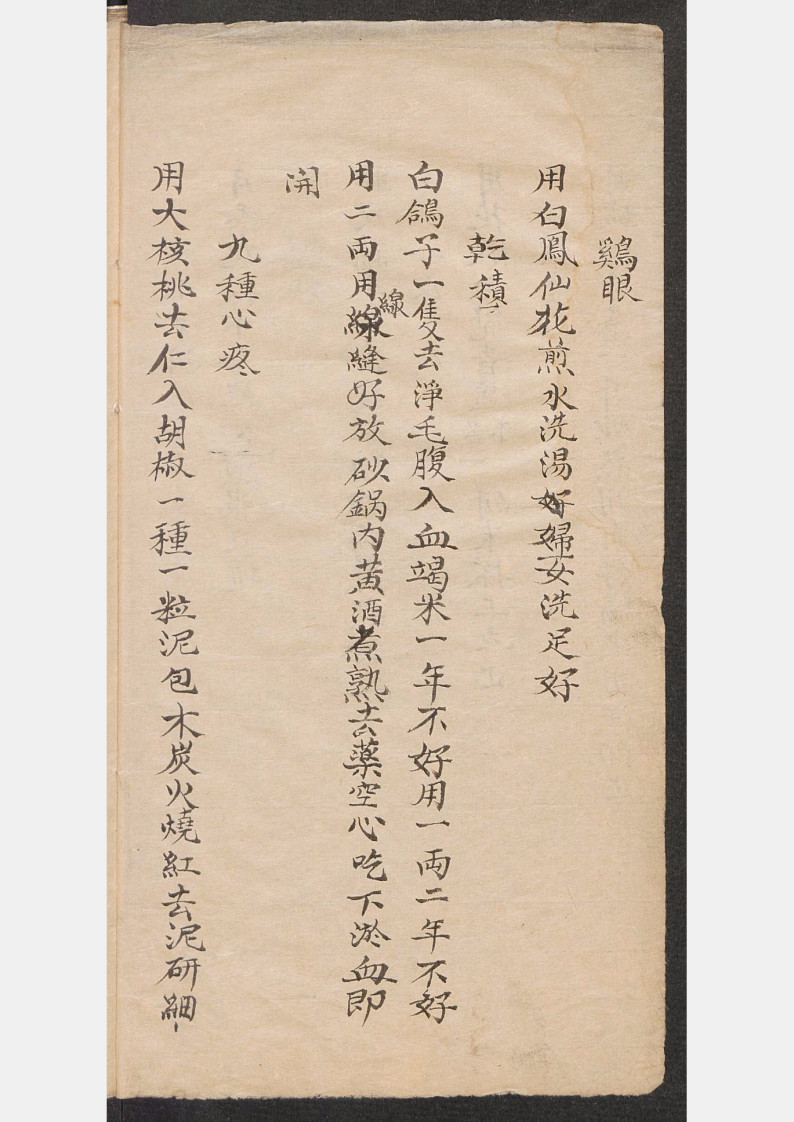 鷄眼
用白鳳仙花煎水洗湯好婦女洗足好
乾積
白鴿子一隻去淨毛腹入血竭米一年不好用一両二年不好
用二両用線縫好放砂鍋內黃酒煮熟去藥空心吃下淤血即
開
九種心疼
用大核桃去仁入胡椒一種一粒泥包木炭火燒紅去泥研細